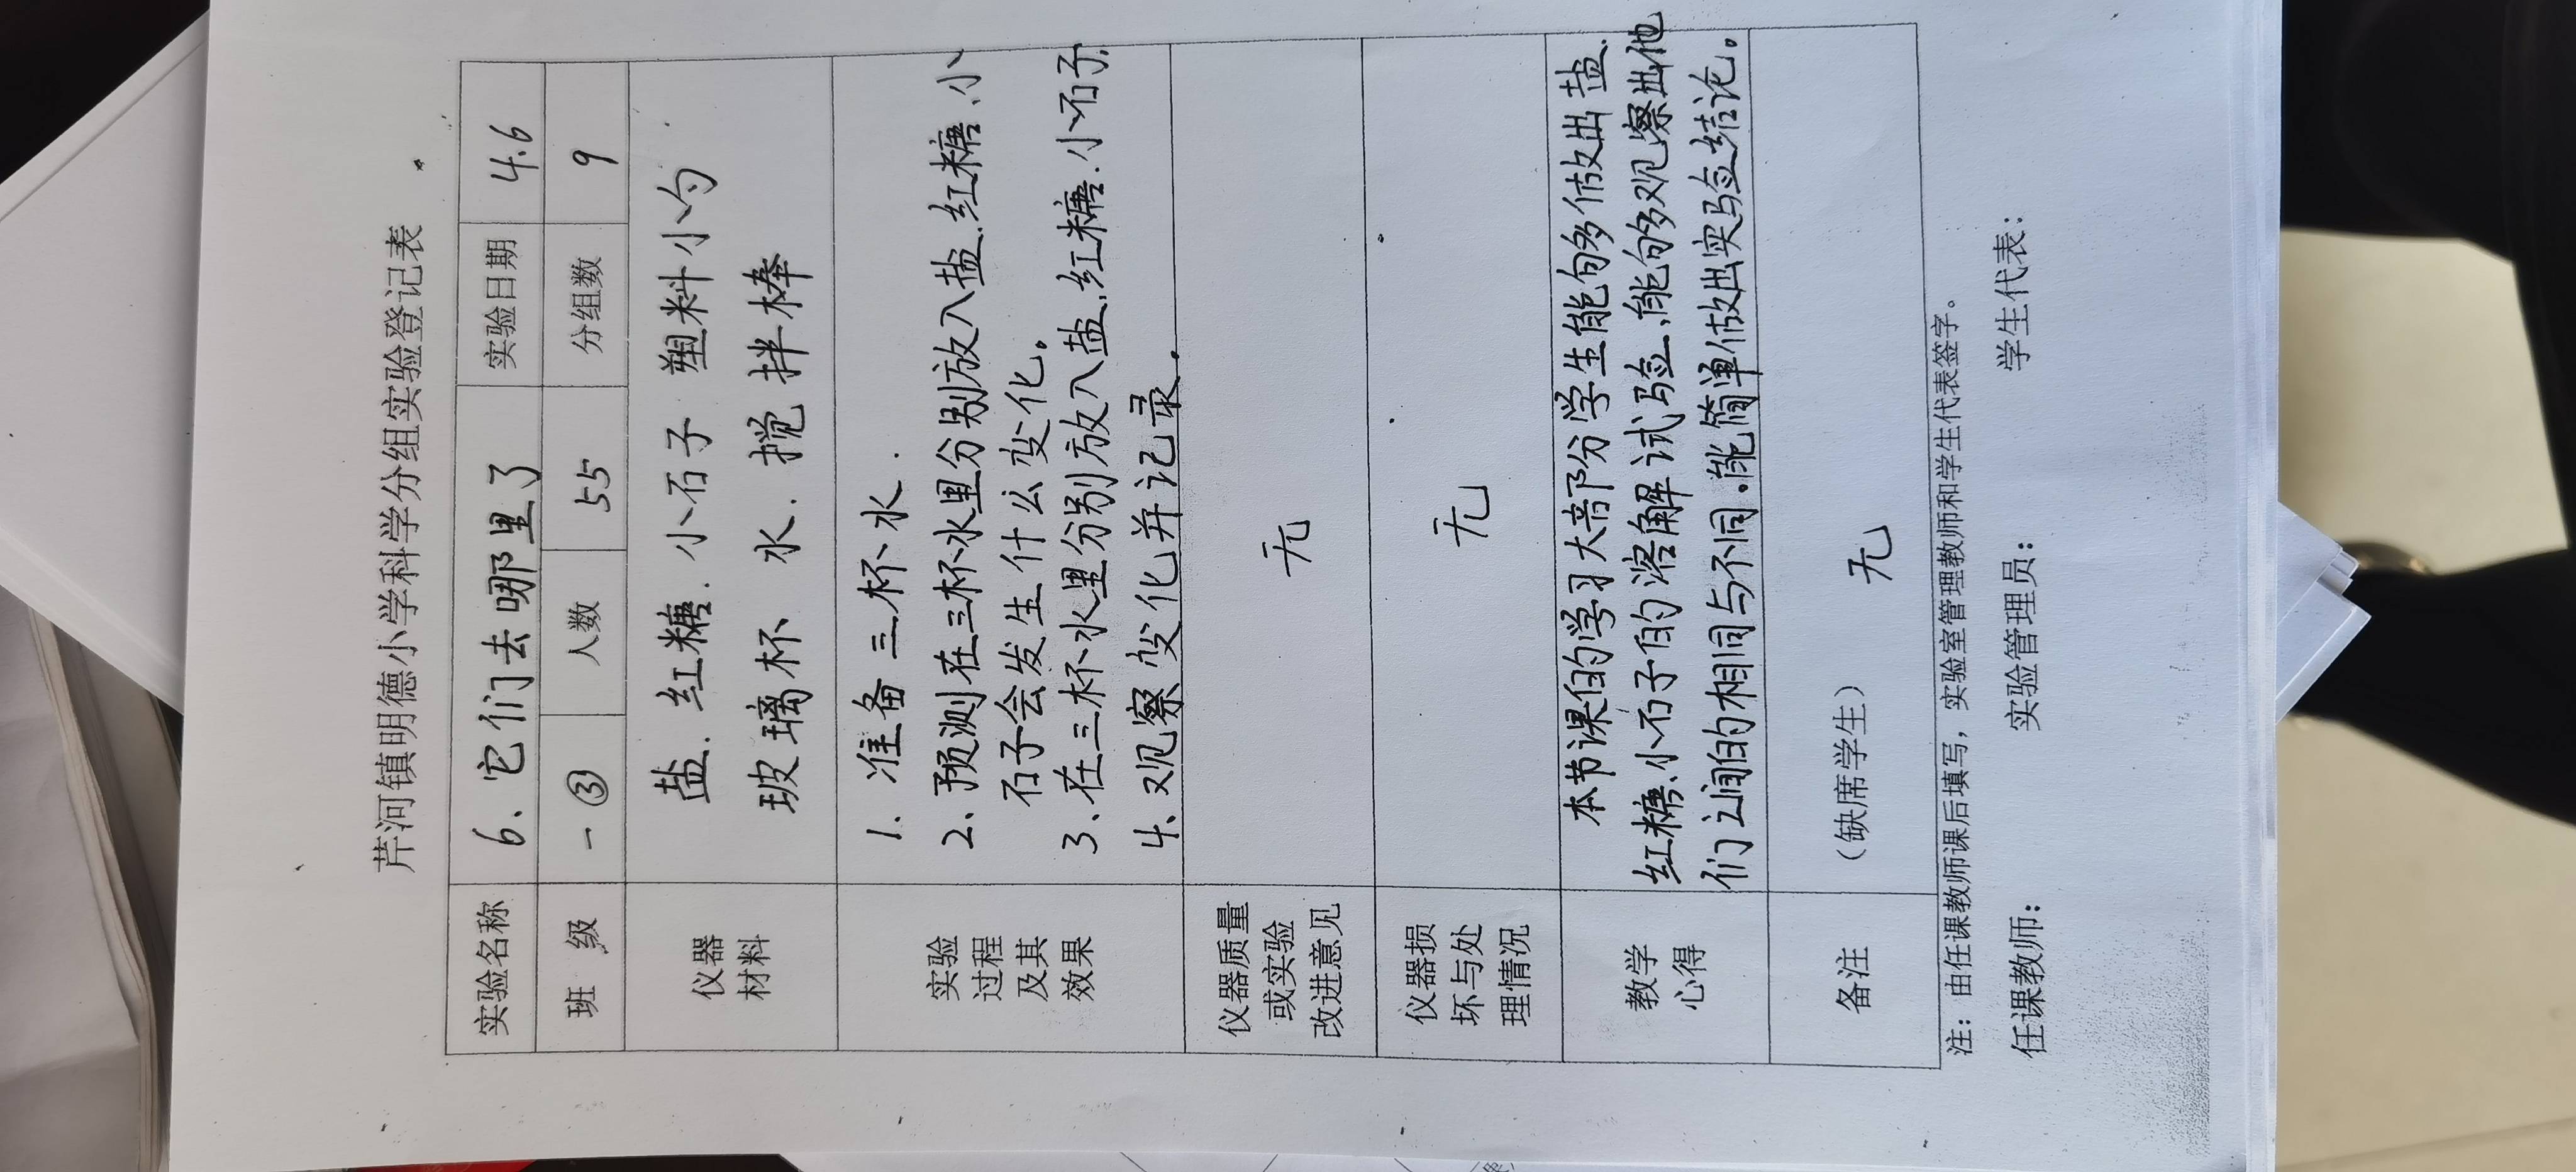 芹河镇明德小学科学分组实验登记表
实验名称 6、它们去哪里了 实验日期 4.6
班 级 一③ 人数 55 分组数 9
仪器
材料
盐.红糖.小石子 塑料小勺
玻璃杯 水.搅拌棒
实验
过程
及其
效果
1.准备三杯水.
2、预测在三杯水里分别放入盐.红糖、小
石子会发生什么变化。
3、在三杯水里分别放入盐.红糖.小石子.
4、观察变化并记录.
仪器质量
或实验
改进意见
无
仪器损
坏与处
理情况
无
教学
心得
本节课的学习大部份学生能够做出盐.
红糖.小石子的溶解试验.能够观察出他
们之间的相同与不同.能简单做出实验结论。
备注
（缺席学生） 无
注：由任课教师课后填写，实验室管理教师和学生代表签字。
任课教师： 实验管理员： 学生代表：